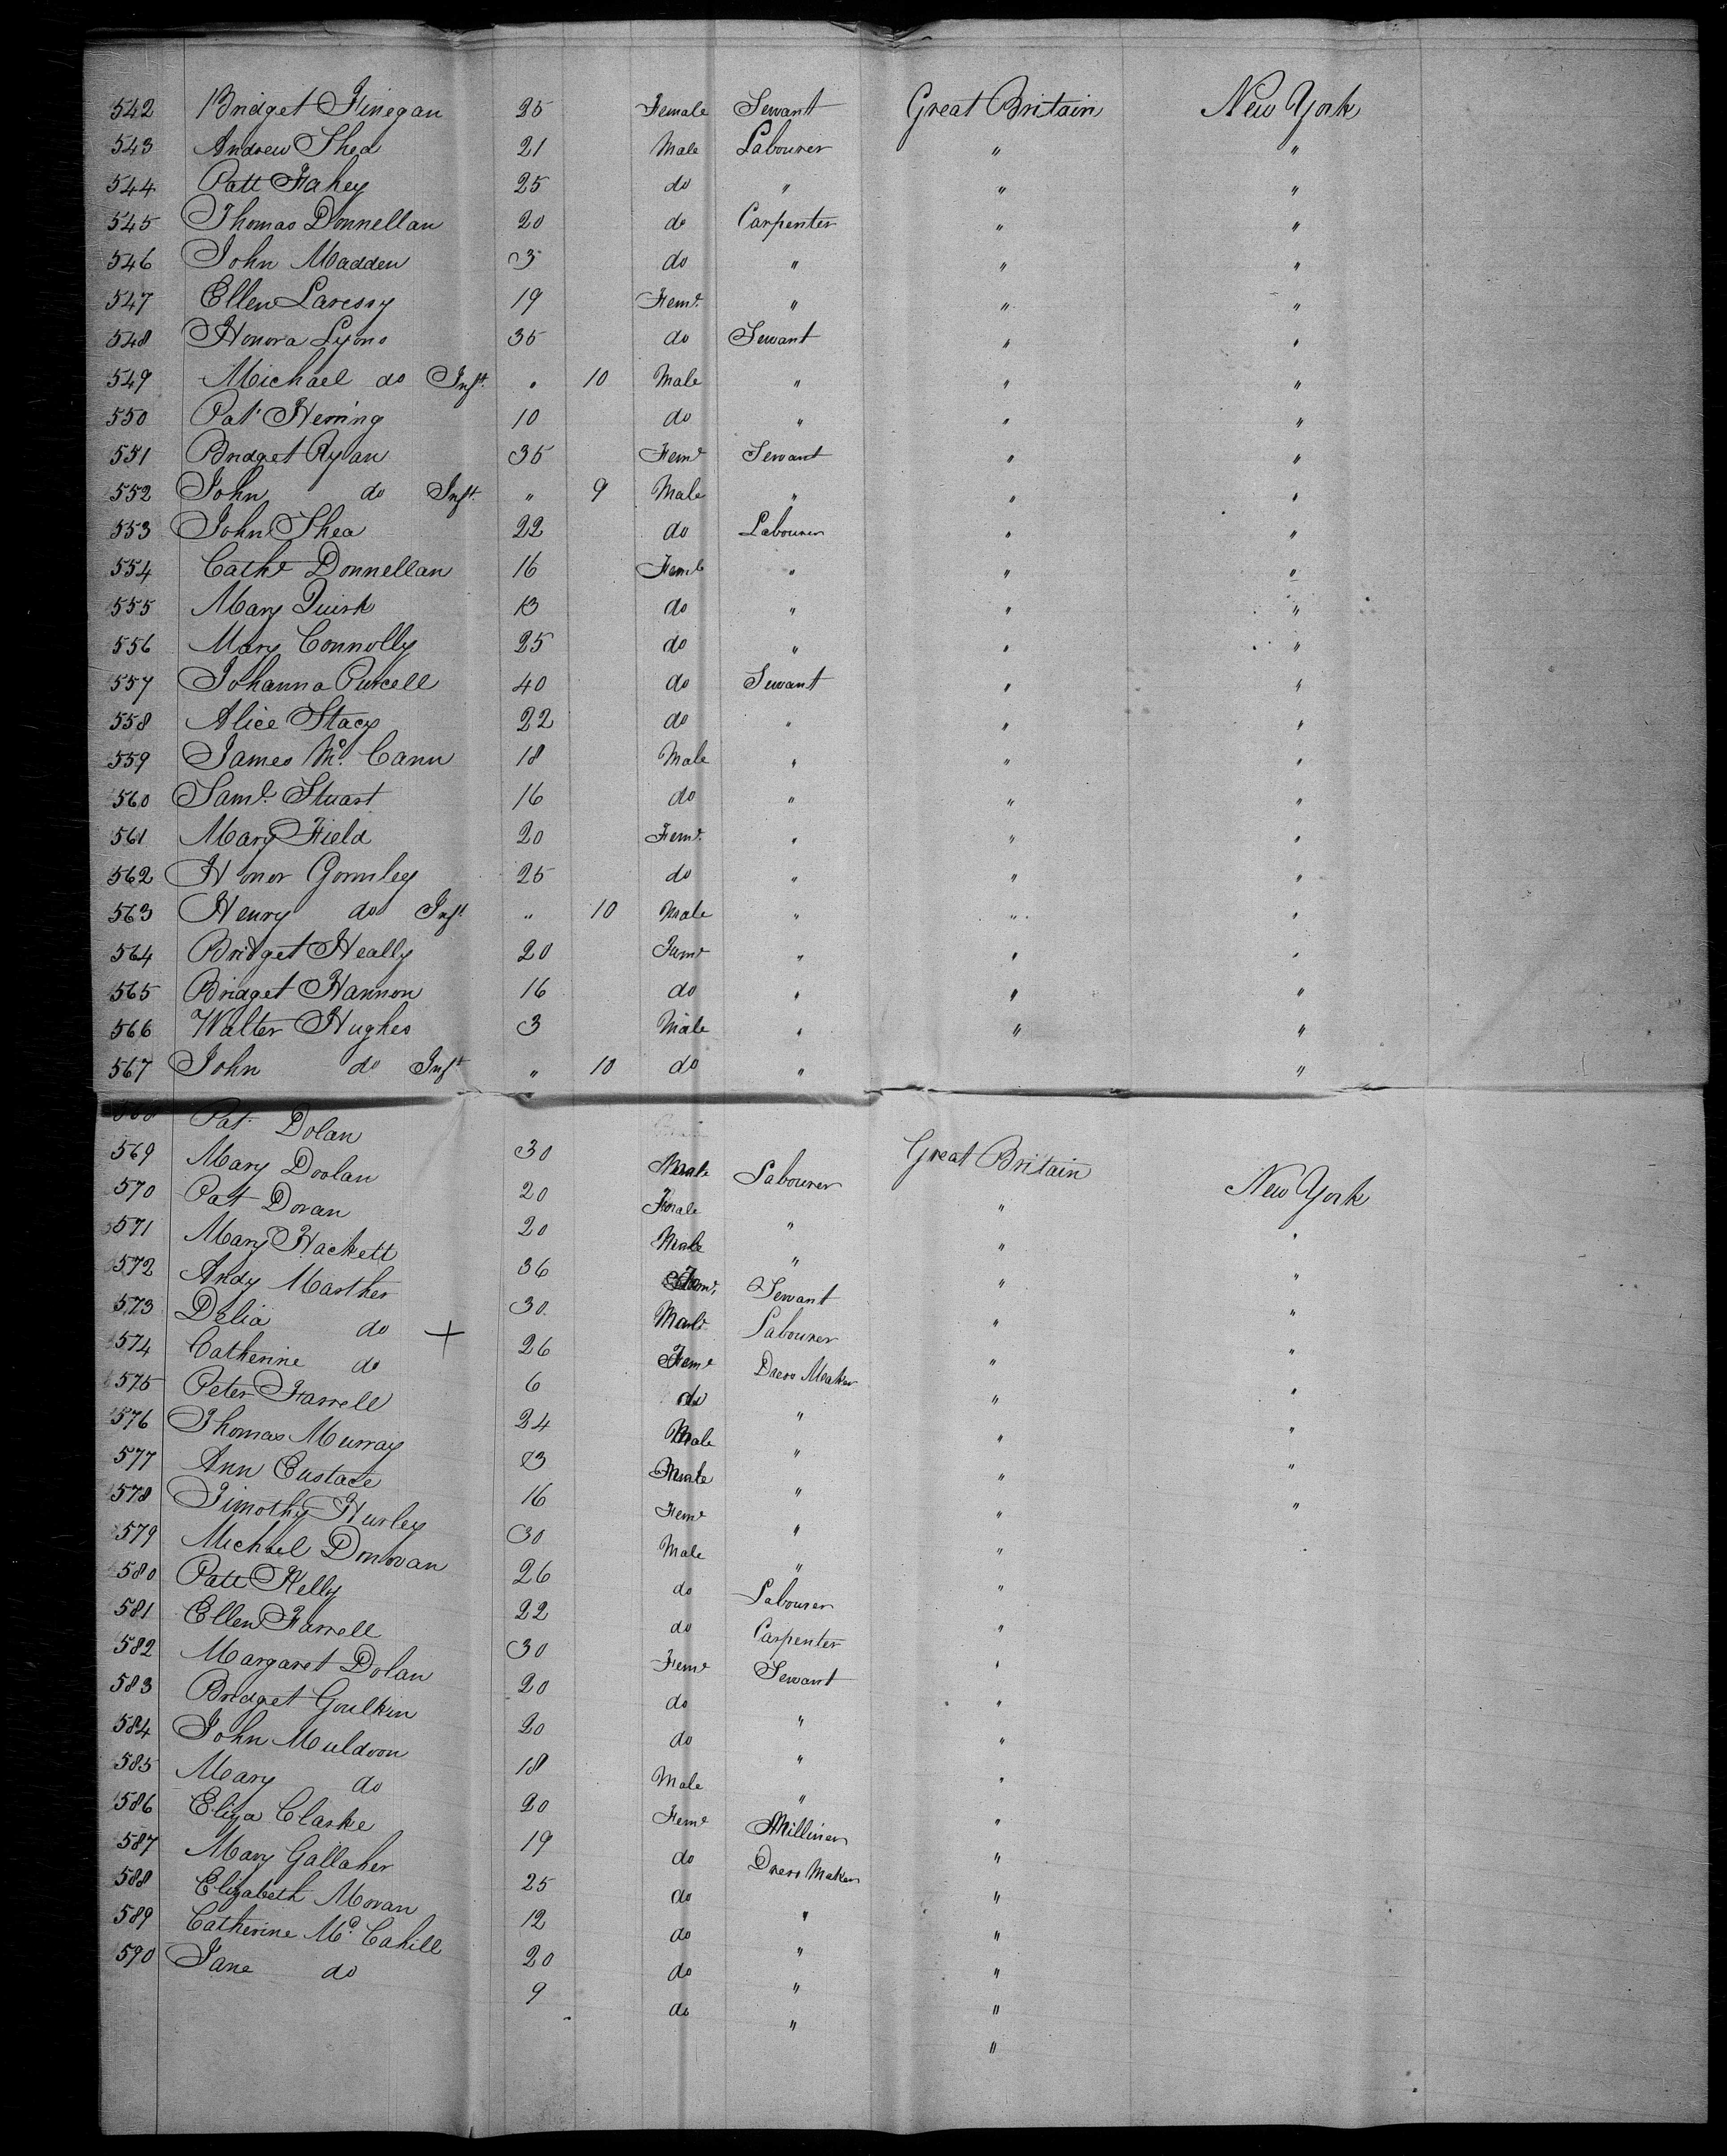 542 Bridget Finegan 25 Female Servant Great Britain New York
543 Andrew Shea 21 Male Labourer " "
544 Patt Fahey 25 do " " "
545 Thomas Donnellan 20 do Carpenter " "
546 John Madden 3 do " " "
547 Ellen 19 Feme " " "
548 Honora Lyons 35 do Servant " "
549 Michael do Inft. " 10 Male " " "
550 Pat Herring 10 do " " "
551 Bridget Ryan 35 Feme Servant " "
552 John do Inft. " 9 Male " " "
553 John Shea 22 do Labourer " "
554 Cathe Donnellan 16 Feme " " "
555 Mary Quirk 13 do " " "
556 Mary Connolly 25 do " " "
557 Johanna Purcell 40 do Servant " "
558 Alice Stacy 22 do " " "
559 James Mc. Cann 18 Male " " "
560 Saml. Stuart 16 do " " "
561 Mary Field 20 Feme. " " "
562 Honor Gormley 25 do " " "
563 Henry do Inft " 10 Male " " "
564 Bridget Heally 20 Feme " " "
565 Bridget Hannon 16 do " " "
566 Walter Hughes 3 Male " " "
567 John do Inft " 10 do " " "
568 Pat Dolan 30 Male Labourer Great Britain New York
569 Mary Doolan 20 Female " " "
570 Pat Doran 20 Male " " "
571 Mary Hackett 36 Feme Servant " "
572 Andy Marther 30 Male Labourer " "
573 Delia do + 26 Feme Dress Maker " "
574 Catherine do 6 do " " "
575 Peter Farrell 24 Male " " "
576 Thomas Murray 3 Male " " "
577 Ann Eustace 16 Feme " "
578 Timothy Hurley 30 Male " "
579 Michael Donovan 26 do Labourer "
580 Patt Kelly 22 do Carpenter "
581 Ellen Farrell 30 Feme Servant "
582 Margaret Dolan 20 do " "
583 Bridget Goulkin 20 do " "
584 John Muldoon 18 Male " "
585 Mary do 20 Feme Milliner "
586 Eliza Clarke 19 do Dress Maker "
587 Mary Gallaher 25 do " "
588 Elizabeth Moran 12 do " "
589 Catherine Mc. Cahill 20 do " "
590 Jane do 9 do " "